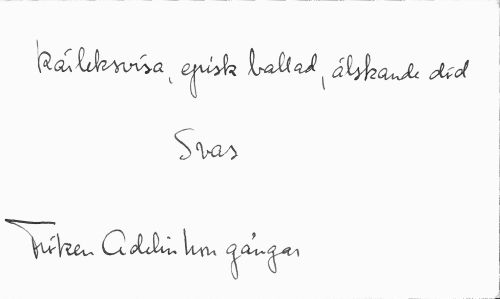 Kärleksvisa, episk ballad, älskande död
Svas
Fröken Adelin hon gångar